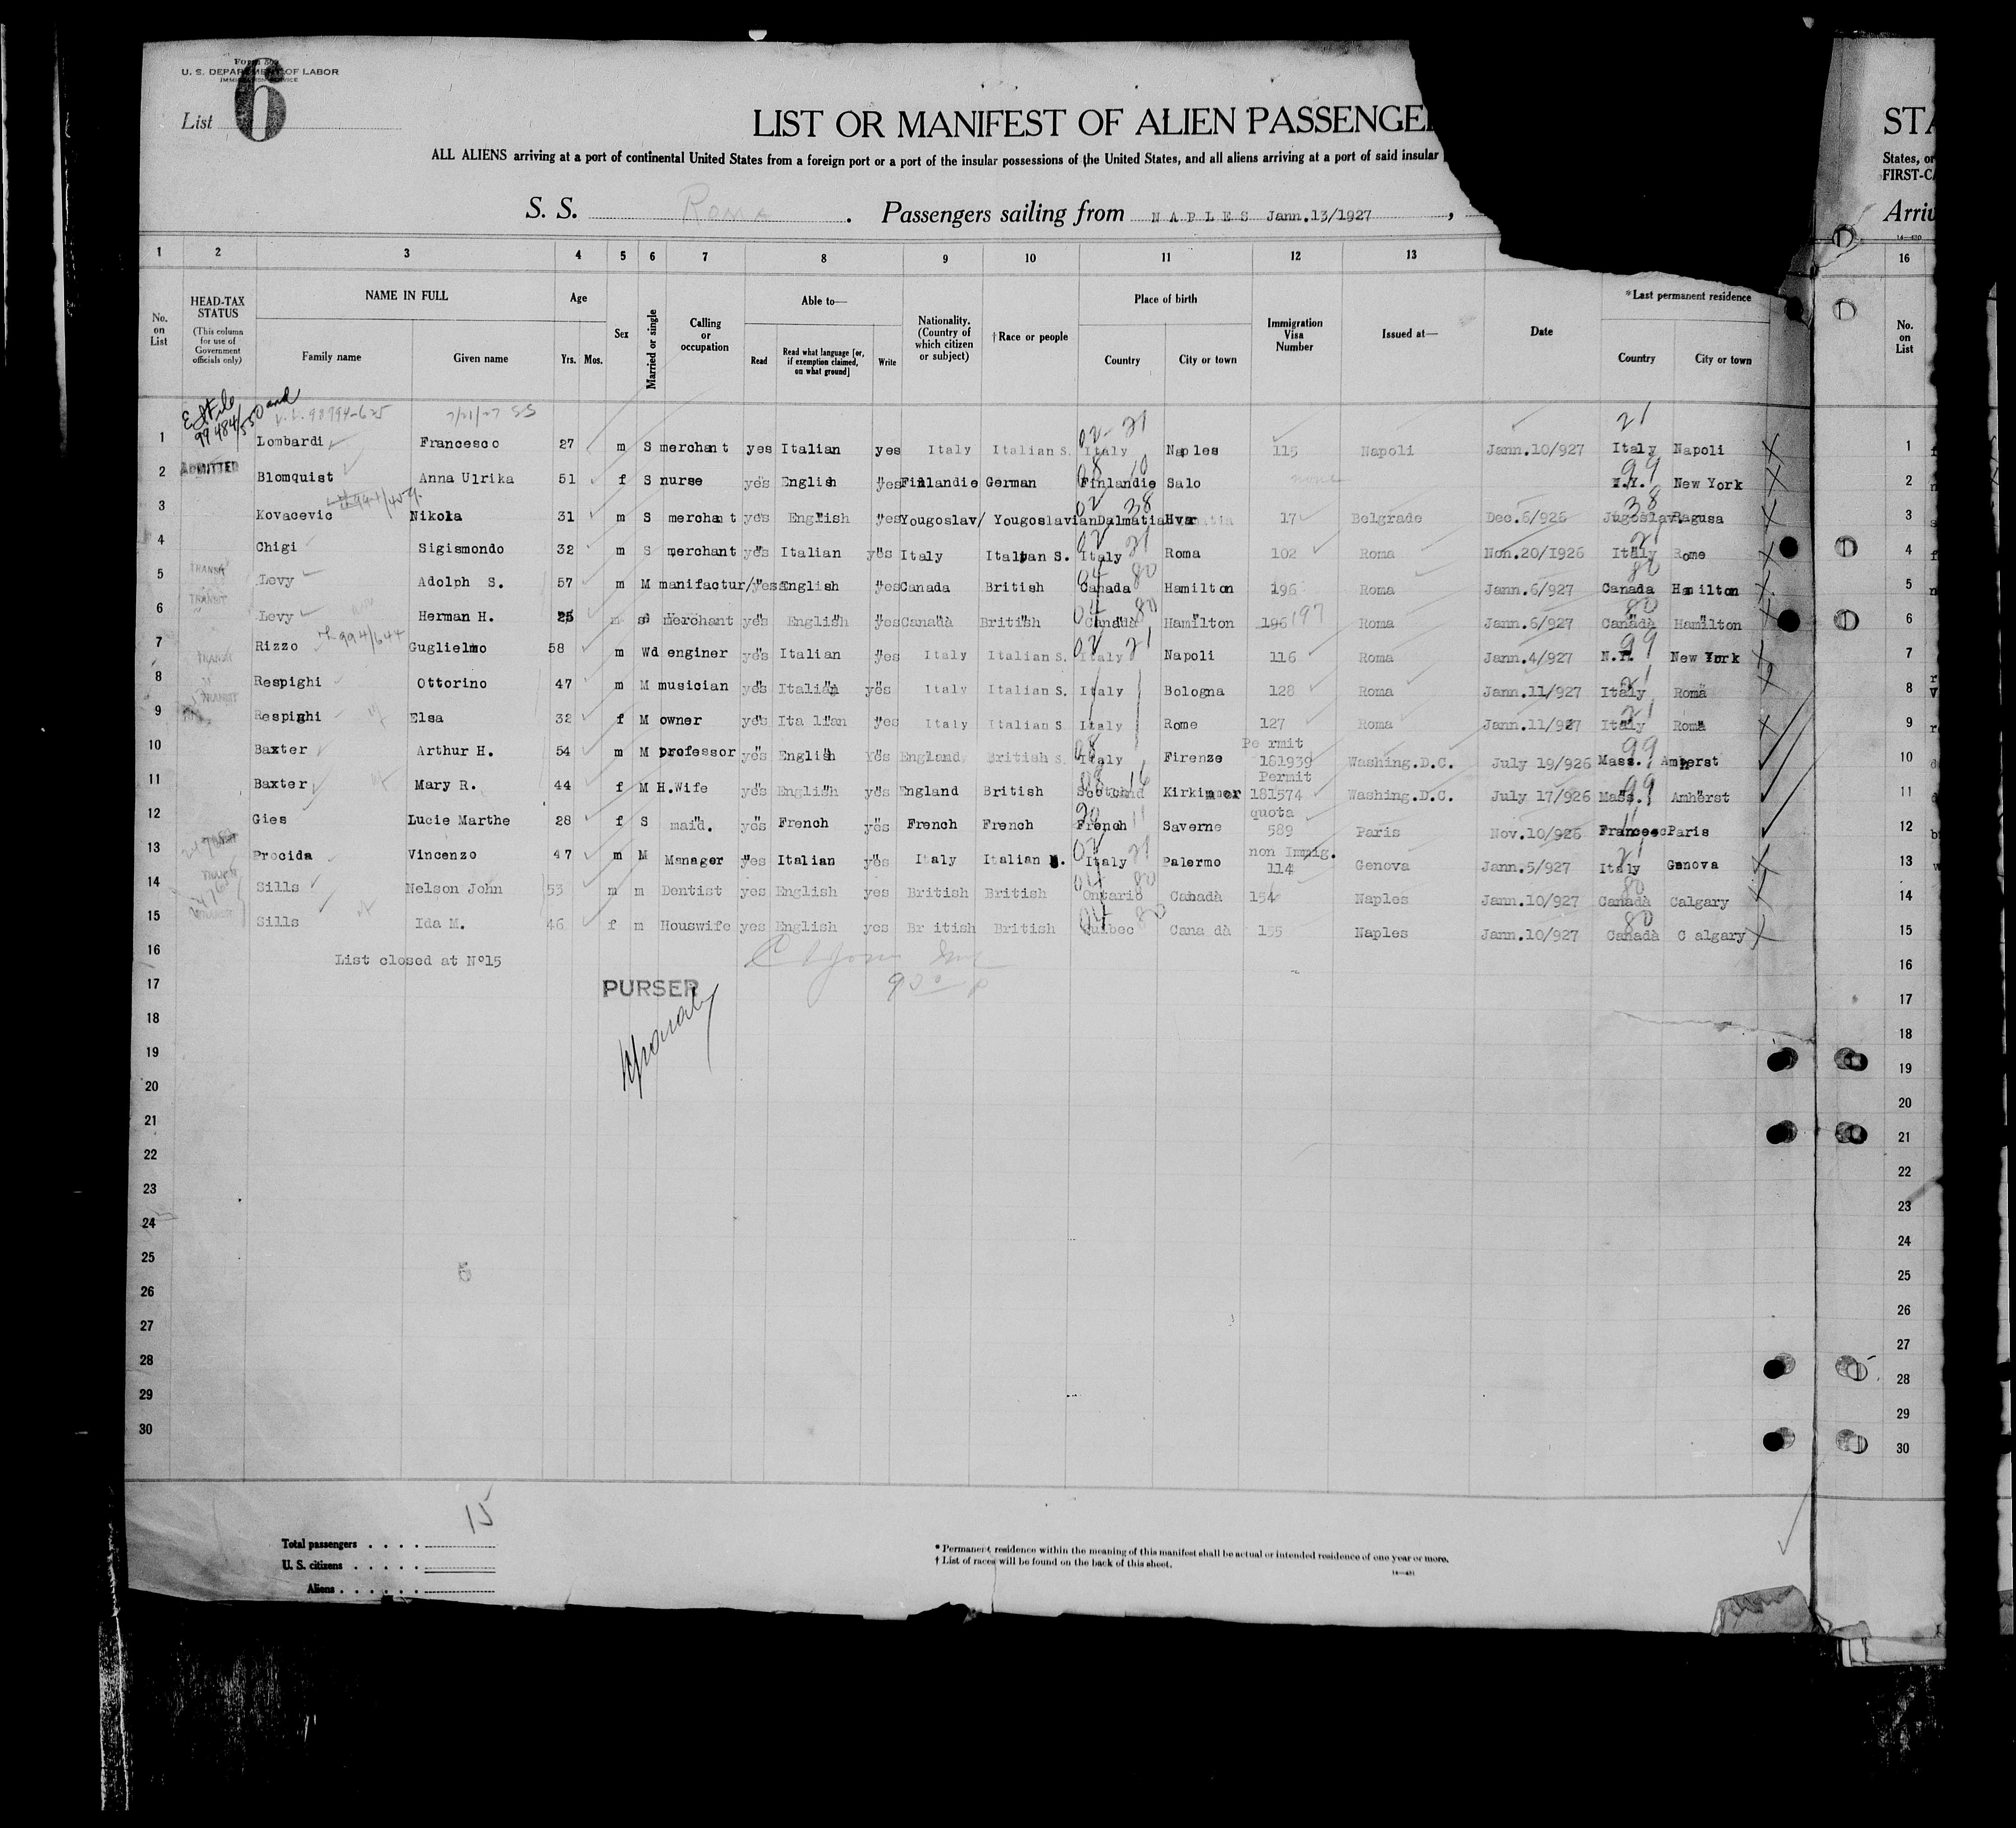 Form 500
U. S. DEPARTMENT OF LABOR
IMMIGRATION SERVICE
List 6
LIST OR MANIFEST OF ALIEN PASSENGE
ALL ALIENS arriving at a port of continental United States from a foreign port or a port of the insular possessions of the United States, and all aliens arriving at a port of said insular
S. S. ROMA . Passengers sailing from NAPLES Jann.13/1927 ,
STA
States, or
FIRST-CA
Arriv
1 2 3 4 5 6 7 8 9 10 11 12 13 16
No. on List
HEAD-TAX STATUS
(This column for use of Government officials only)
NAME IN FULL
Family name Given name
Age
Yrs. Mos.
Sex
Married or single
Calling or occupation
Able to—
Read Read what language [or, if exemption claimed, on what ground] Write
Nationality. (Country of which citizen or subject)
†Race or people
Place of birth
Country City or town
Immigration Visa Number
Issued at—
Date
*Last permanent residence
Country City or town
No. on List
1 Lombardi Francesco 27 m S merchant yes Italian yes Italy Italian S. Italy Naples 115 Napoli Jann.10/927 Italy Napoli 1
2 ADMITTED Blomquist Anna Ulrika 51 f S nurse yes English yes Finlandie German Finlandie Salo none N.Y. New York 2
3 Kovacevic Nikola 31 m S merchant yes English yes Yougoslav/ Yougoslavian Dalmatia Hvar 17 Belgrade Dec.6/926 Jugoslav. Ragusa 3
4 Chigi Sigismondo 32 m S merchant yes Italian yes Italy Italian S. Italy Roma 102 Roma Non.20/1926 Italy Rome 4
5 TRANSIT Levy Adolph S. 57 m M manifactur/ yes English yes Canada British Canada Hamilton 196 Roma Jann.6/927 Canada Hamilton 5
6 TRANSIT Levy Herman H. 25 m s merchant yes English yes Canadà British Canadà Hamilton 196 197 Roma Jann.6/927 Canadà Hamilton 6
7 Rizzo Guglielmo 58 m Wd enginer yes Italian yes Italy Italian S. Italy Napoli 116 Roma Jann.4/927 N.Y. New York 7
8 TRANSIT Respighi Ottorino 47 m M musician yes Italian yes Italy Italian S. Italy Bologna 128 Roma Jann.11/927 Italy Roma 8
9 TRANSIT Respighi Elsa 32 f M owner yes Italian yes Italy Italian S. Italy Rome 127 Roma Jann.11/927 Italy Roma 9
10 Baxter Arthur H. 54 m M professor yes English yes England British S. Italy Firenze Permit 181939 Washing.D.C. July 19/926 Mass. Amherst 10
11 Baxter Mary R. 44 f M H.Wife yes English yes England British Scotland Permit 181574 Washing.D.C. July 17/926 Mass. Amherst 11
12 Gies Lucie Marthe 28 f S maid. yes French yes French French French Saverne quota 589 Paris Nov.10/926 Paris 12
13 Procida Vincenzo 47 m M Manager yes Italian yes Italy Italian Italy Palermo non Immig. 114 Genova Jann.5/927 Italy Genova 13
14 Sills Nelson John 53 m m Dentist yes English yes British British Ontario Canadà 154 Naples Jann.10/927 Canadà Calgary 14
15 Sills Ida M. 46 f m Houswife yes English yes British British Quibec Canadà 155 Naples Jann.10/927 Canadà Calgary 15
16 List closed at N°15 16
17 PURSER 17
18 18
19 19
20 20
21 21
22 22
23 23
24 24
25 25
26 26
27 27
28 28
29 29
30 30
15
Total passengers . . . .
U. S. citizens . . . . .
Aliens . . . . . .
* Permanent residence within the meaning of this manifest shall be actual or intended residence of one year or more.
† List of races will be found on the back of this sheet.